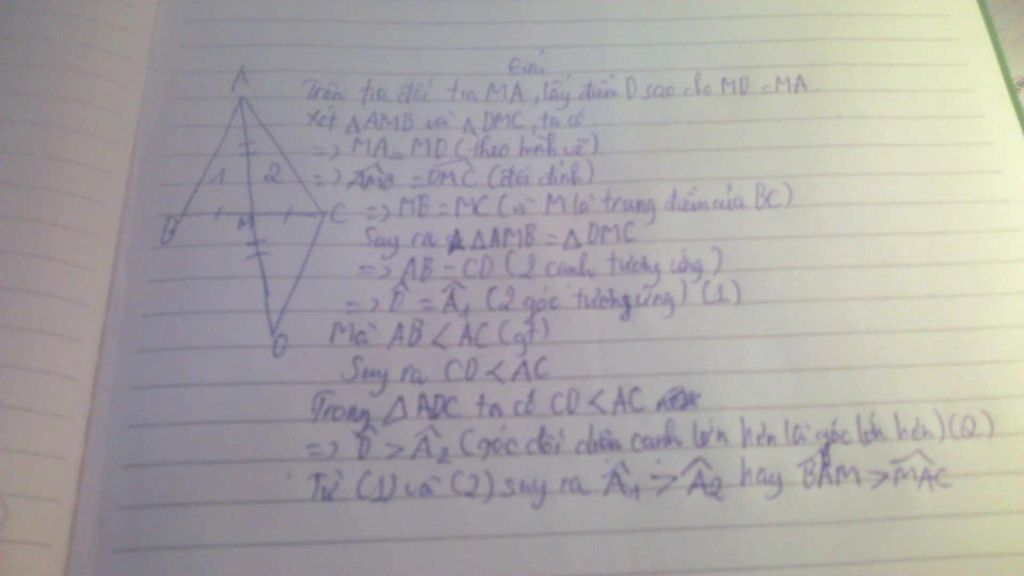 Giải
A
Trên tia đối tia MA, lấy điểm D sao cho MD = MA.
Xét △AMB và △DMC, ta có
=> MA = MD (theo hình vẽ)
1 2
=> AMB = DMC (đối đỉnh)
B M C
=> MB = MC (vì M là trung điểm của BC)
Suy ra △AMB = △DMC
=> AB = CD (2 cạnh tương ứng)
=> D̂ = Â₁ (2 góc tương ứng) (1)
D
Mà AB < AC (gt)
Suy ra CD < AC
Trong △ADC ta có CD < AC
=> D̂ > Â₂ (góc đối diện cạnh lớn hơn là góc lớn hơn) (2)
Từ (1) và (2) suy ra Â₁ > Â₂ hay BAM > MAC